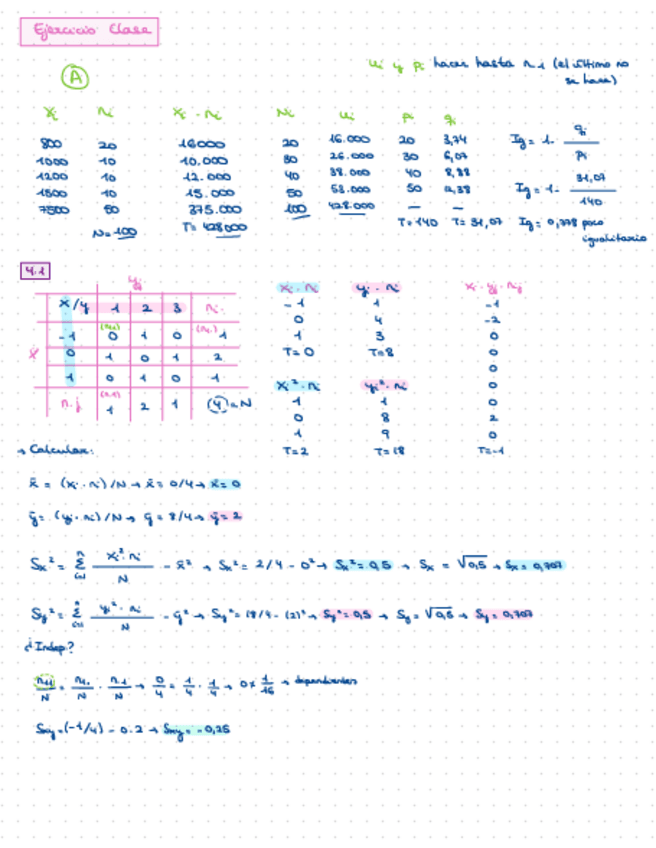 Ejercicio Clase
ui y pi hacer hasta n-1 (el último no se hace)
A
xi ni xi · ni Ni ui pi qi
800 20 16000 20 16.000 20 3,74
1000 10 10.000 30 26.000 30 6,07
1200 10 12.000 40 38.000 40 8,88
1500 10 15.000 50 53.000 50 12,38
7500 50 375.000 100 428.000 — —
N=100 T= 428000 T=140 T= 31,07
Ig = 1- qi / pi
Ig = 1- 31,07 / 140
Ig = 0,778 poco igualitario
4.1
yj
x/y 1 2 3 ni.
xi -1 0 1 0 1
0 1 0 1 2
1 0 1 0 1
n.j 1 2 1 (4)=N
xi · ni
-1
0
1
T=0
yj · ni
1
4
3
T=8
xi² · ni
1
0
1
T=2
yi² · ni
1
8
9
T=18
xi · yj · nij
-1
-2
0
0
0
0
0
2
0
T=-1
→ Calcular:
x̄ = (xi · ni) /N → x̄ = 0/4 → x̄ = 0
ȳ = (yj · ni) /N → ȳ = 8/4 → ȳ = 2
Sx² = Σ xi² · ni / N - x̄² → Sx² = 2/4 - 0² → Sx² = 0,5 → Sx = √0,5 → Sx = 0,707
Sy² = Σ yi² · ni / N - ȳ² → Sy² = 18/4 - (2)² → Sy² = 0,5 → Sy = √0,5 → Sy = 0,707
¿Indep?
n11/N = n1./N · n.1/N → 0/4 = 1/4 · 1/4 → 0 ≠ 1/16 → dependientes
Sxy = (-1/4) - 0·2 → Sxy = -0,25